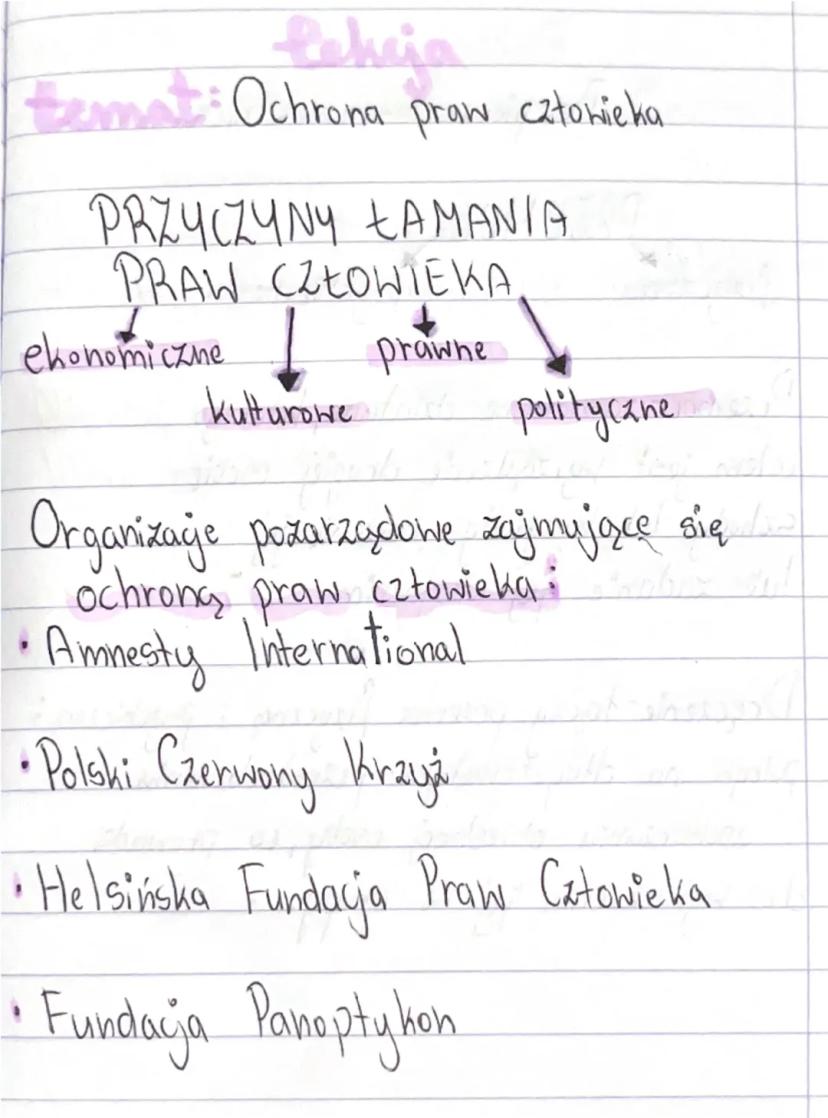 Lekcja
temat: Ochrona praw człowieka
PRZYCZYNY ŁAMANIA
PRAW CZŁOWIEKA
ekonomiczne prawne
kulturowe polityczne
Organizacje pozarządowe zajmujące się
ochroną praw człowieka:
• Amnesty International
• Polski Czerwony Krzyż
• Helsińska Fundacja Praw Człowieka
• Fundacja Panoptykon